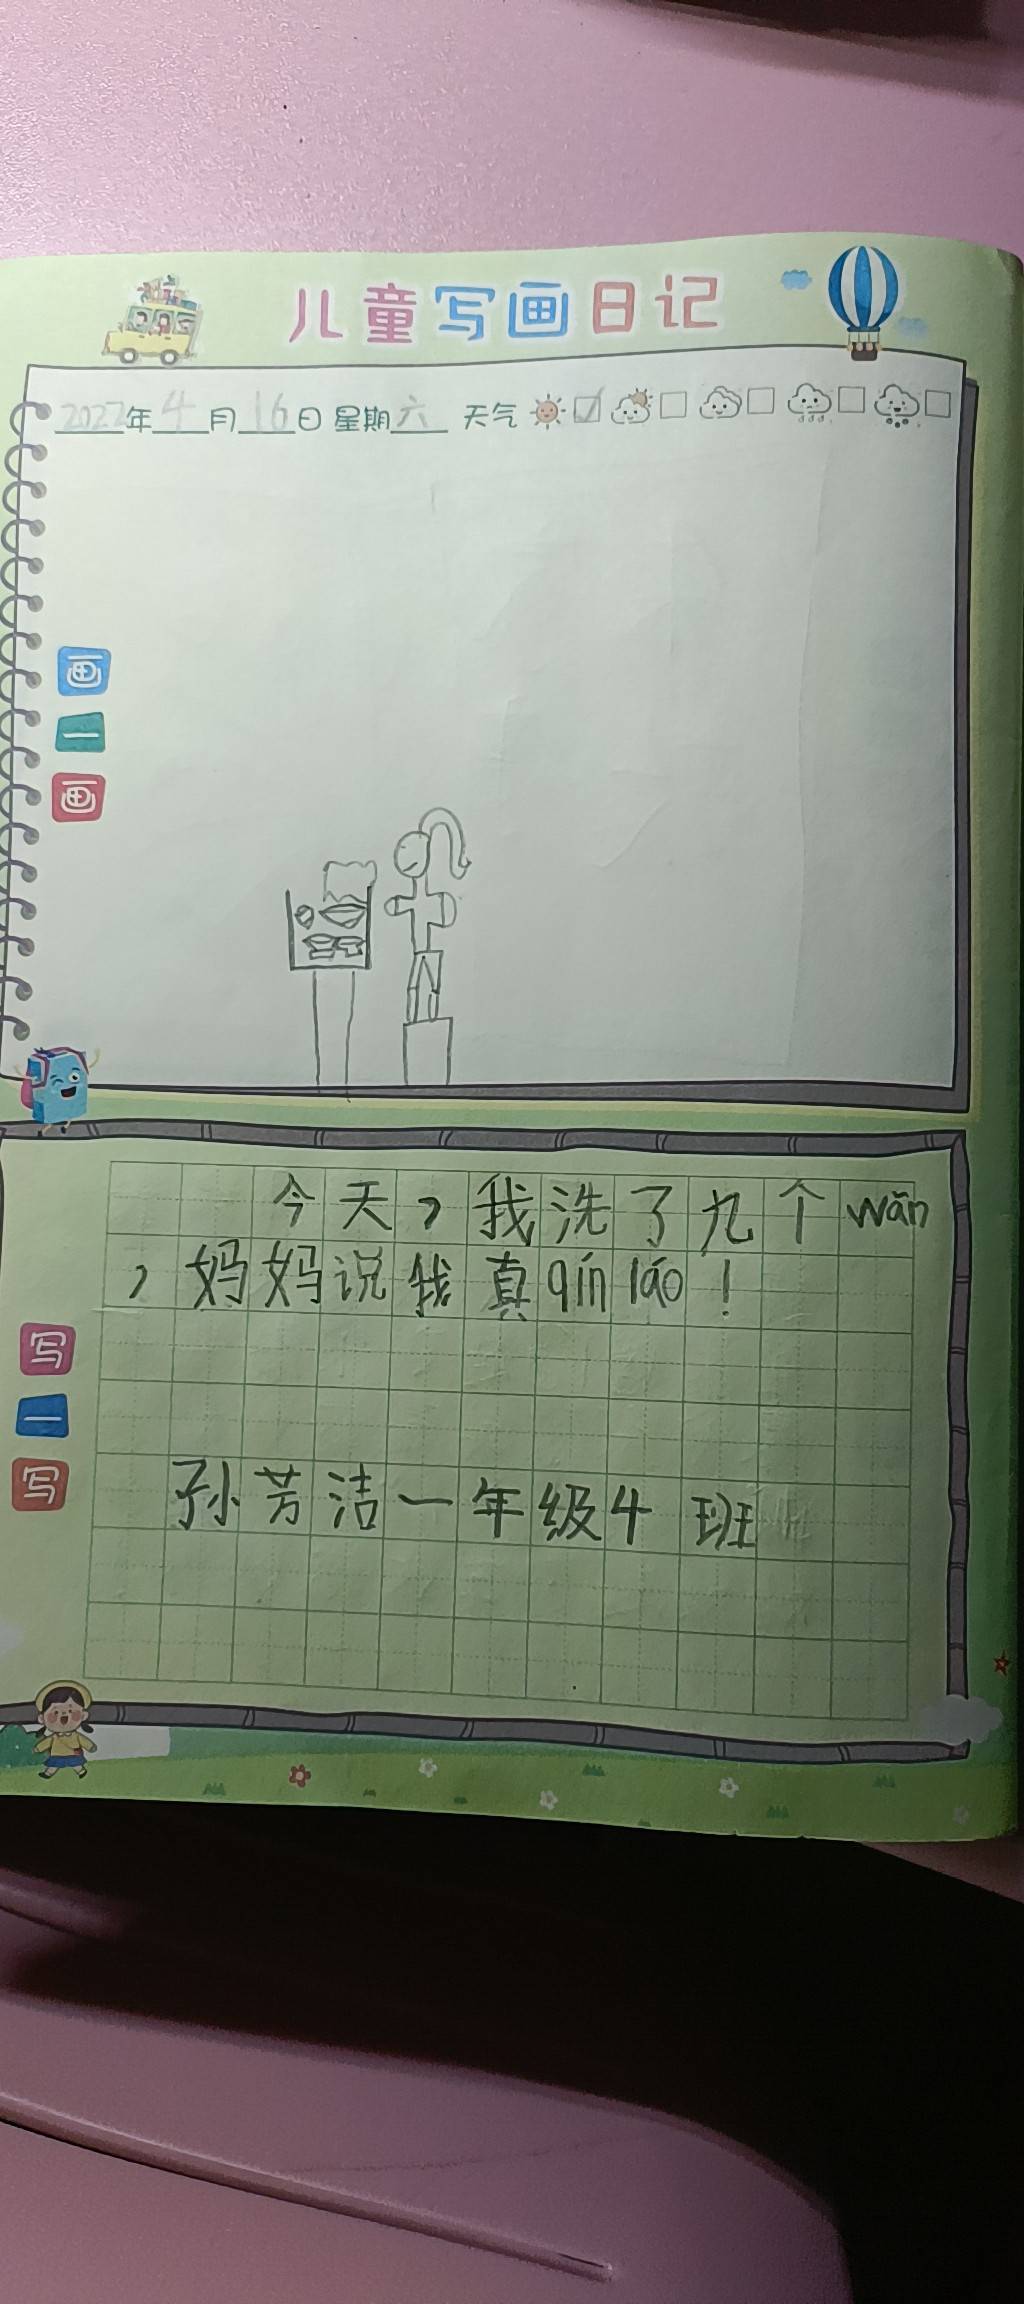 儿童写画日记
2022年4月16日 星期六 天气
画一画
今天，我洗了九个wǎn
，妈妈说我真qín láo！
写一写
孙芳洁一年级4班